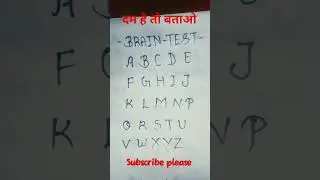 दम है तो बताओ
-BRAIN-TEST-
A B C D E
F G H I J
K L M N P
Q R S T U
V W X Y Z
Subscribe please